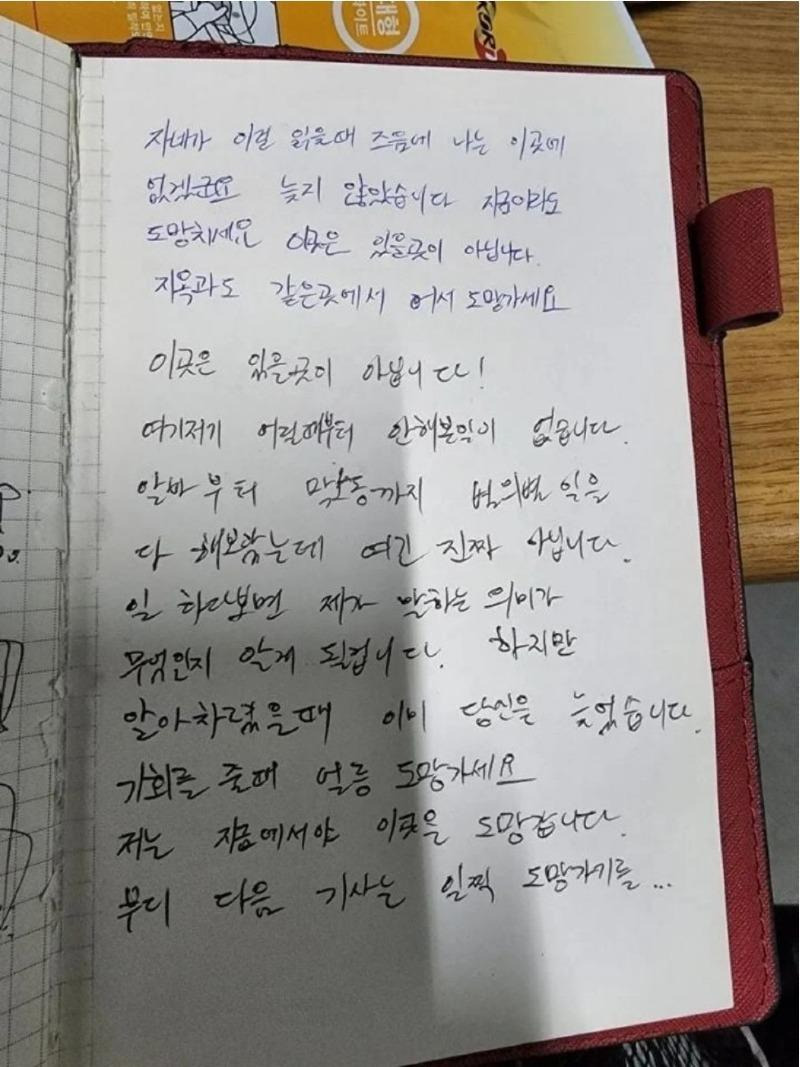 대형
자네가 이걸 읽을때 즈음에 나는 이곳에
없겠군요 늦지 않았습니다 지금이라도
도망치세요 이곳은 있을곳이 아닙니다.
지옥과도 같은곳에서 어서 도망가세요
이곳은 있을곳이 아닙니다!
여기저기 어릴때부터 안해본일이 없습니다.
알바부터 막노동까지 별의별 일을
다 해보았는데 여긴 진짜 아닙니다.
일 하다보면 제가 말하는 의미가
무엇인지 알게 될겁니다. 하지만
알아차렸을때 이미 당신은 늦었습니다.
기회를 줄때 얼릉 도망가세요
저는 지금에서야 이곳을 도망갑니다.
부디 다음 기사는 일찍 도망가기를...